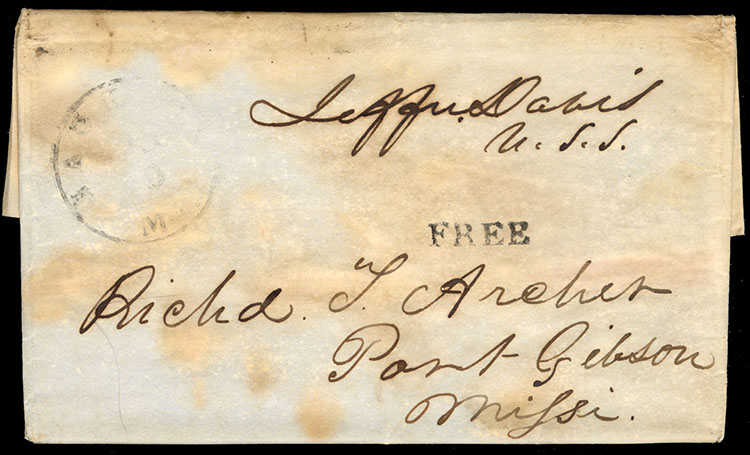 Jeffn. Davis
U.S.S.
FREE
Richd. T. Archer
Port Gibson
Missi.